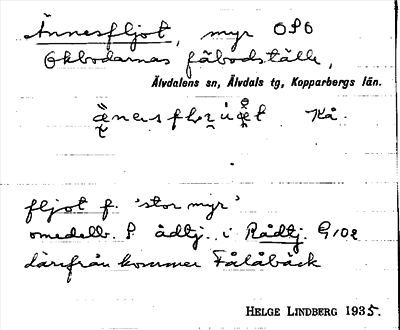 Ännesfljot, myr OSO
Okbodarnas fäbodställe,
Älvdalens sn, Älvdals tg, Kopparbergs län.
Kå.
fljot f. 'stor myr'
omedelb. S ådtj. i Rådtj. G102
därifrån kommer Fålåbäck
HELGE LINDBERG 1935.